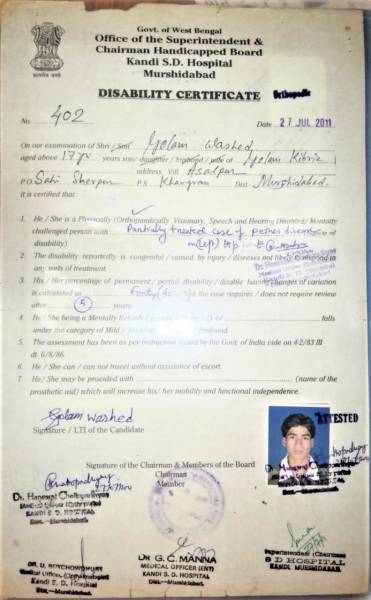 Govt. of West Bengal
Office of the Superintendent &
Chairman Handicapped Board
Kandi S.D. Hospital
Murshidabad
Orthopedic
DISABILITY CERTIFICATE
No 402 Date 27 JUL 2011
On our examination of Shri / Smt Golam Washed
aged above 17 years son/ daughter / husband / wife of Golam Kibria
address Vill Asalpur
P.O Sahi Sherpur P.S Khargram Dist Murshidabad.
it is certified that
1. He / She is a Physically (Orthopaedically Visionary, Speech and Hearing Disorder/ Mentally
challenged person with Partially treated case of perthes disease
disability) (Left) Hip
2. The disability reportedly is congenital / caused by injury / diseases not likely to respond to
any sorts of treatment.
3. His / Her percentage of permanent / partial disability / disable having changes of variation
is calculated as Forty the case requires / does not require review
after 5 years.
4. He / She being a Mentally of falls
under the category of Mild / Profound.
5. The assessment has been as per instruction issued by the Govt. of India vide on 4-2/83 III
dt. 6/8/86.
6. He / She can / can not travel without assistance of escort.
7. He / She may be provided with (name of the
prosthetic aid) which will increase his/ her mobility and functional independence.
Golam Washed
Signature / LTI of the Candidate
ATTESTED
Signature of the Chairman & Members of the Board
Chairman
Member
KANDI S. D. HOSPITAL
Dist.-Murshidabad.
DR. U. ROYCHOWDHURY
Kandi S. D. Hospital
Dist.-Murshidabad.
DR. G. C. MANNA
MEDICAL OFFICER (ENT)
KANDI S. D. HOSPITAL
Dist.-Murshidabad.
S D HOSPITAL
KANDI, MURSHIDABAD.